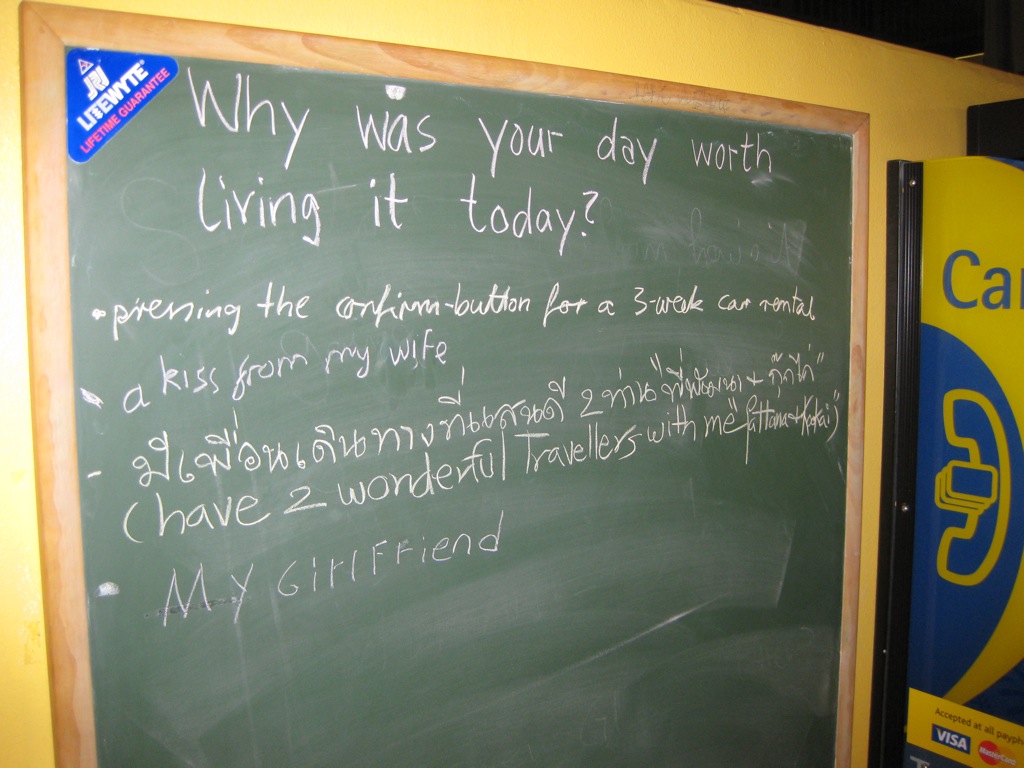 JRJ
LITEWYTE®
LIFETIME GUARANTEE
Why was your day worth
living it today?
• pressing the confirm-button for a 3-week car rental
- a kiss from my wife
- มีเพื่อนเดินทางที่แสนดี 2 ท่าน "พี่พัฒนา + กุ๊กไก่"
(have 2 wonderful Travellers with me "Pattana + Kookai")
• My GirlFriend
Accepted at all payph
VISA
MasterCard